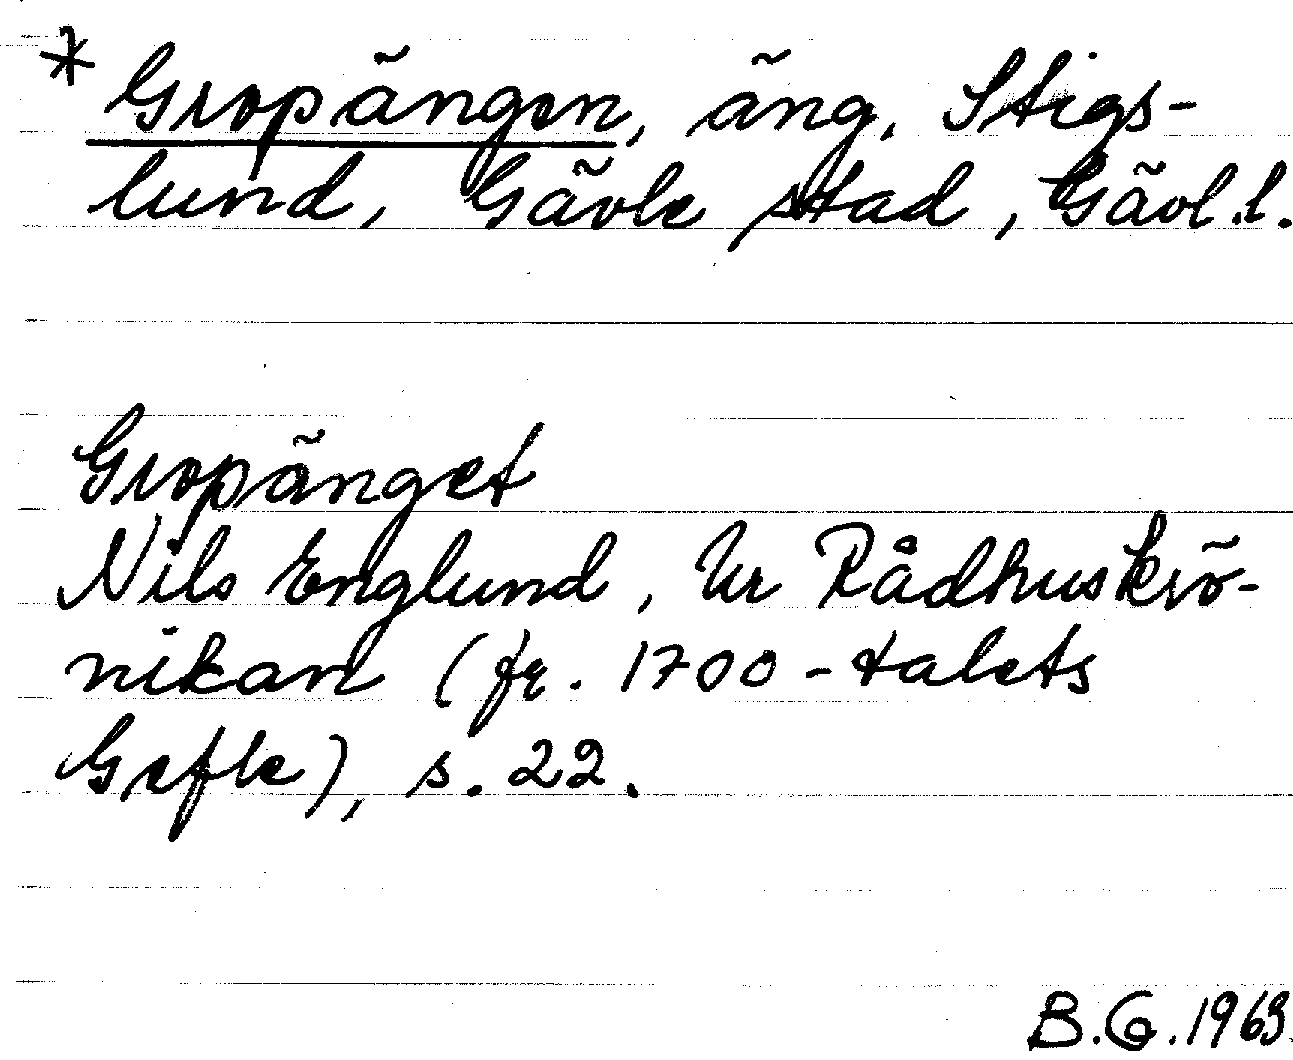 * Gropängen, äng, Stigs-
lund, Gävle stad, Gävl.l.
Gropänget
Nils Englund, Ur Rådhuskrö-
nikan (fr. 1700-talets
Gefle), s. 22.
B.G. 1963